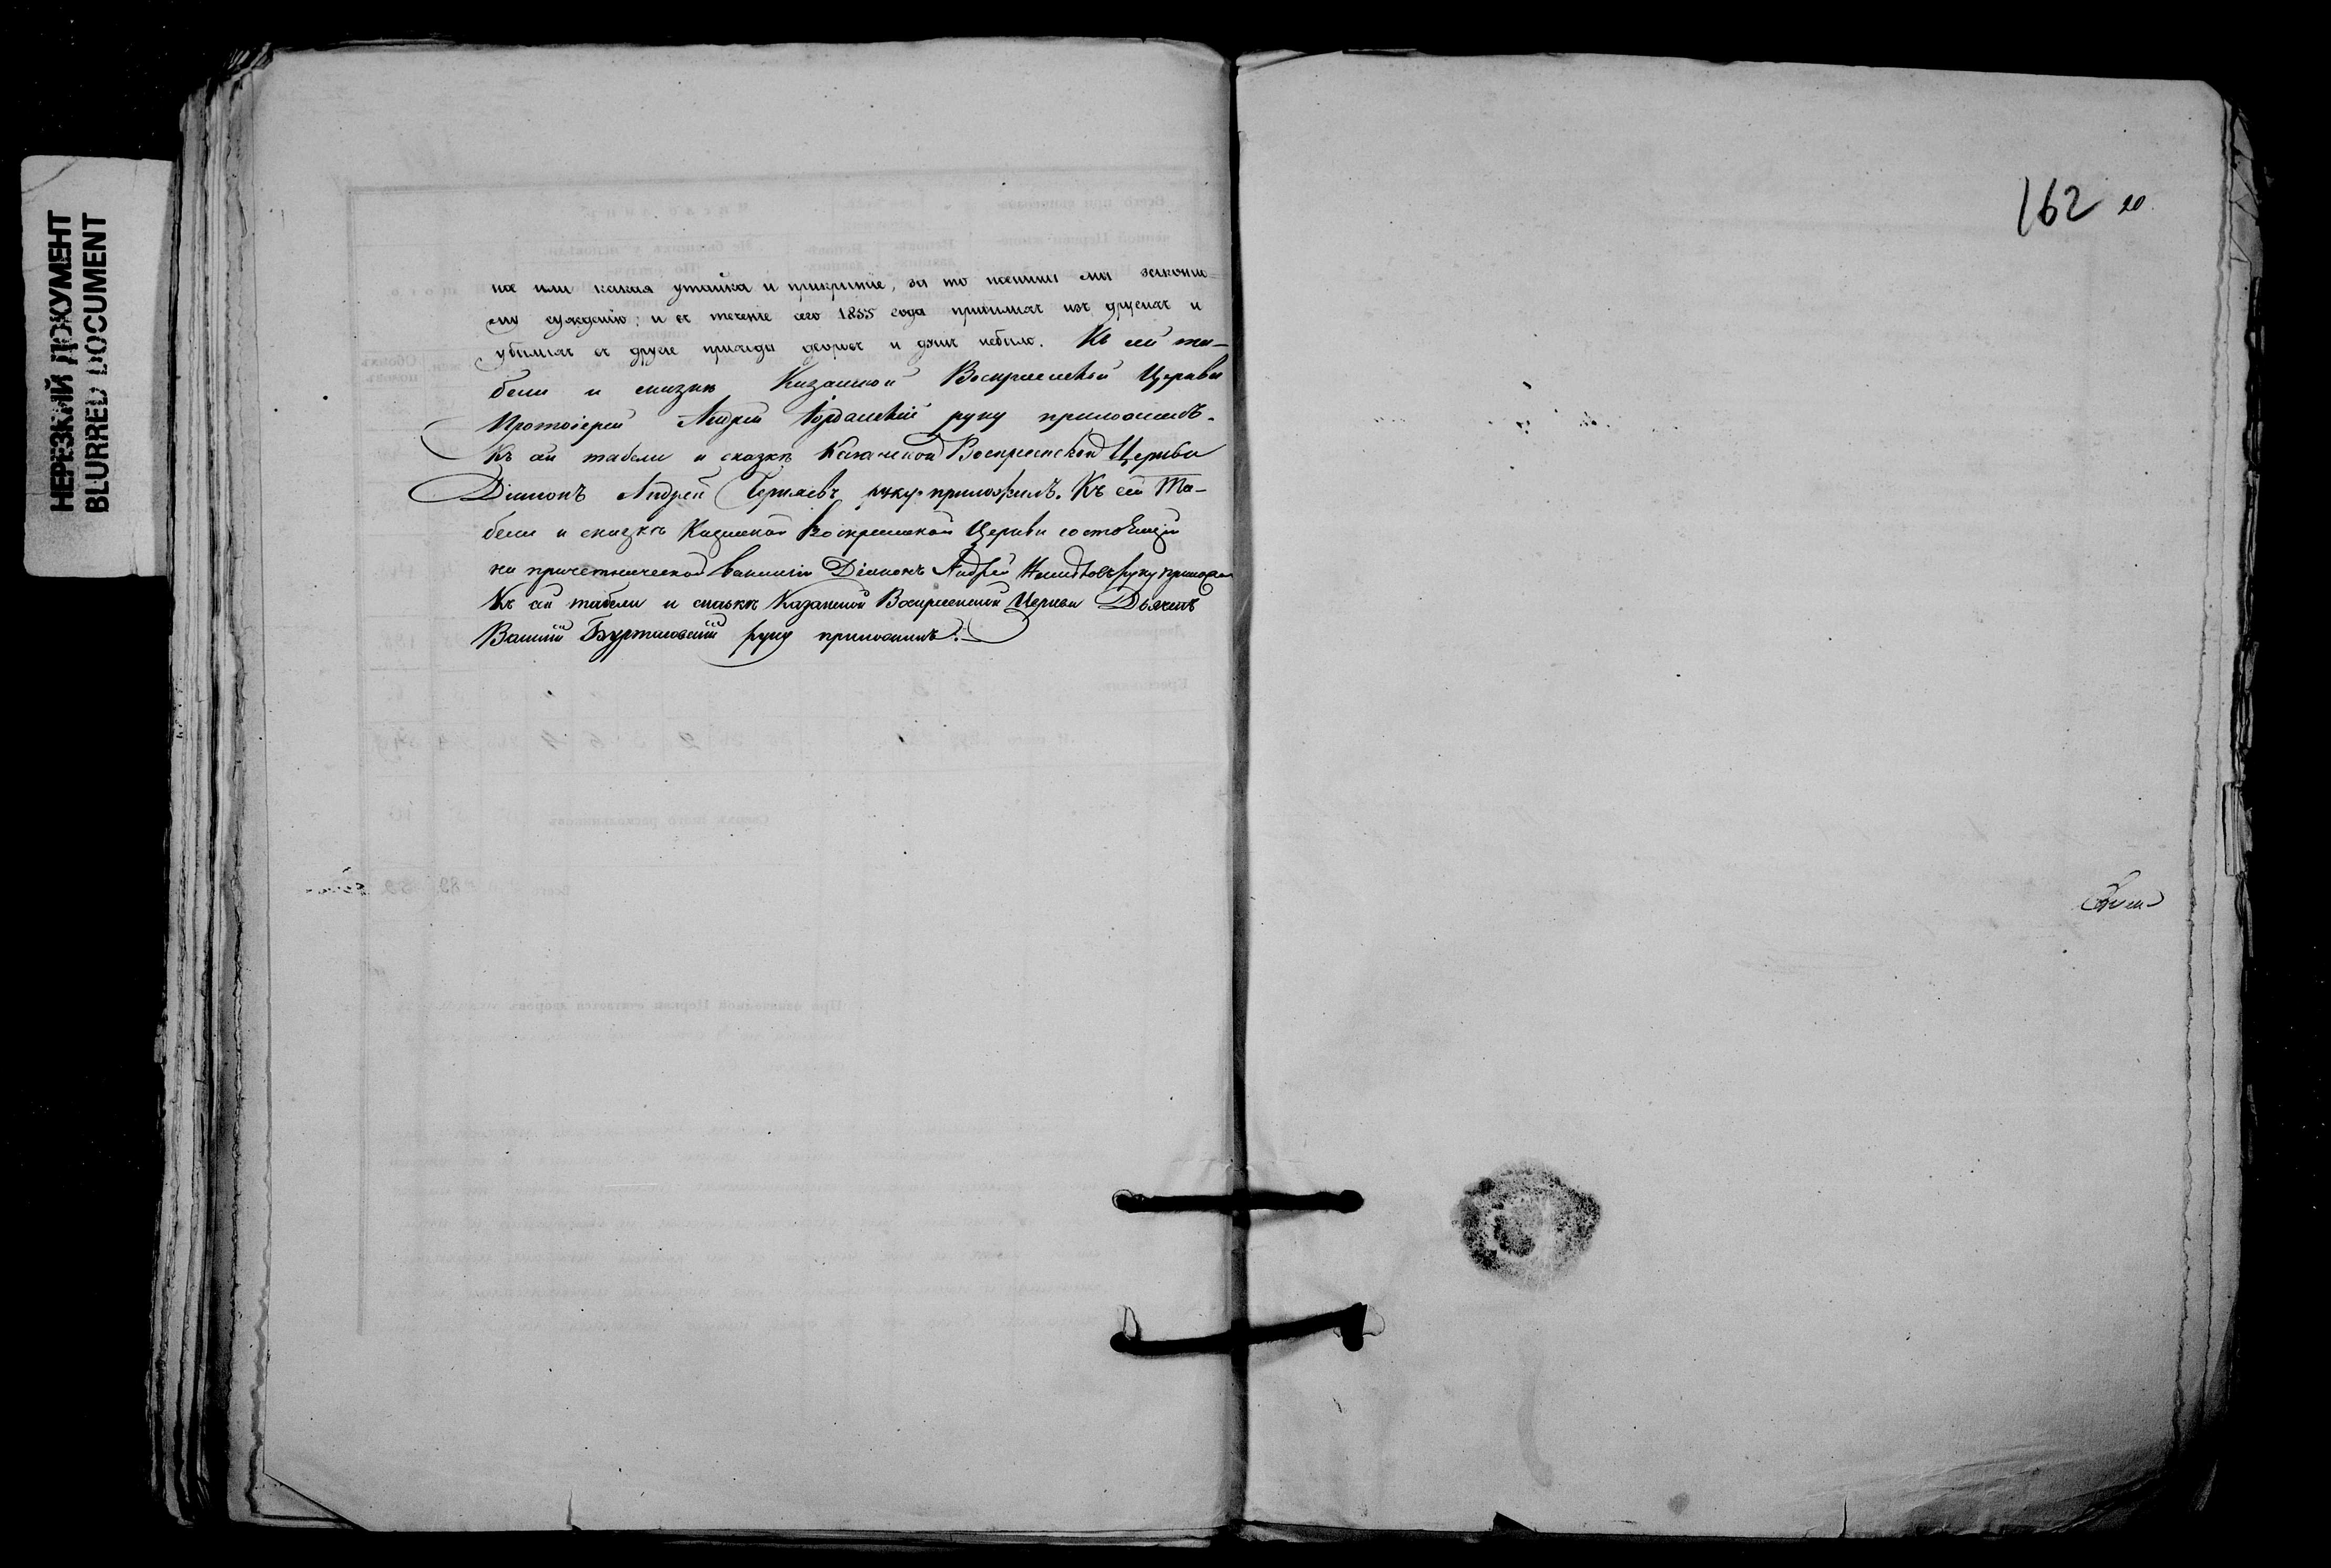 НЕРЕЗКИЙ ДОКУМЕНТ
BLURRED DOCUMENT
ное или какая утайка и прикрытіе, за то повинны мы законно-
му сужденію; и въ теченіе сего 1855 года прибылыхъ изъ другихъ и
убылыхъ въ другіе приходы дворовъ и душъ небыло. Къ сей та-
бели и сказкѣ Казанской Воскресенской Церкви
Протоіерей Андрей руку приложилъ.
Къ сей табели и сказкѣ Казанской Воскресенской Церкви
Діаконъ Андрей руку приложилъ. Къ сей Та-
бели и сказкѣ Казанской Воскресенской Церкви состоящій
на причетнической вакансіи Діаконъ Андрей руку приложилъ
Къ сей табели и сказкѣ Казанской Воскресенской Церкви Дьячекъ
Василій руку приложилъ.
162 20